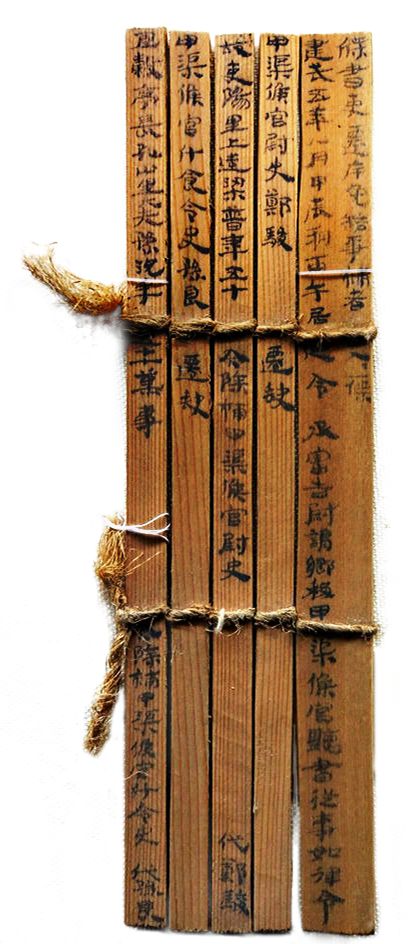 牒書吏遷斥免給事補者人一牒
建武五年八月甲辰朔丙午居延令 丞審告尉謂鄉移甲渠候官聽書從事如律令
甲渠候官尉史鄭駿 遷缺
故吏陽里上造梁普年五十 今除補甲渠候官尉史 代鄭駿
甲渠候官斗食令史孫良 遷缺
宜穀亭長孤山里大夫孫況年五十七 事 今除補甲渠候官斗食令史 代孫良